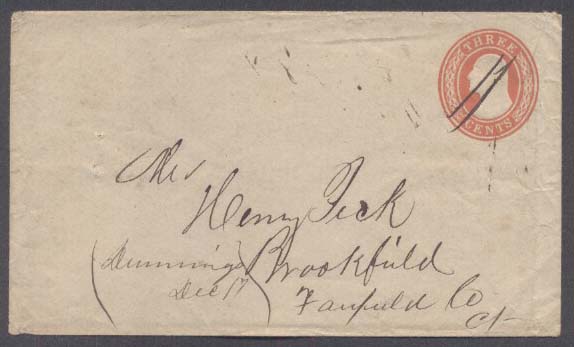 THREE
CENTS
Mr
Henry Peck
Brookfield
Fairfield Co
Ct
Dunnings
Dec 17